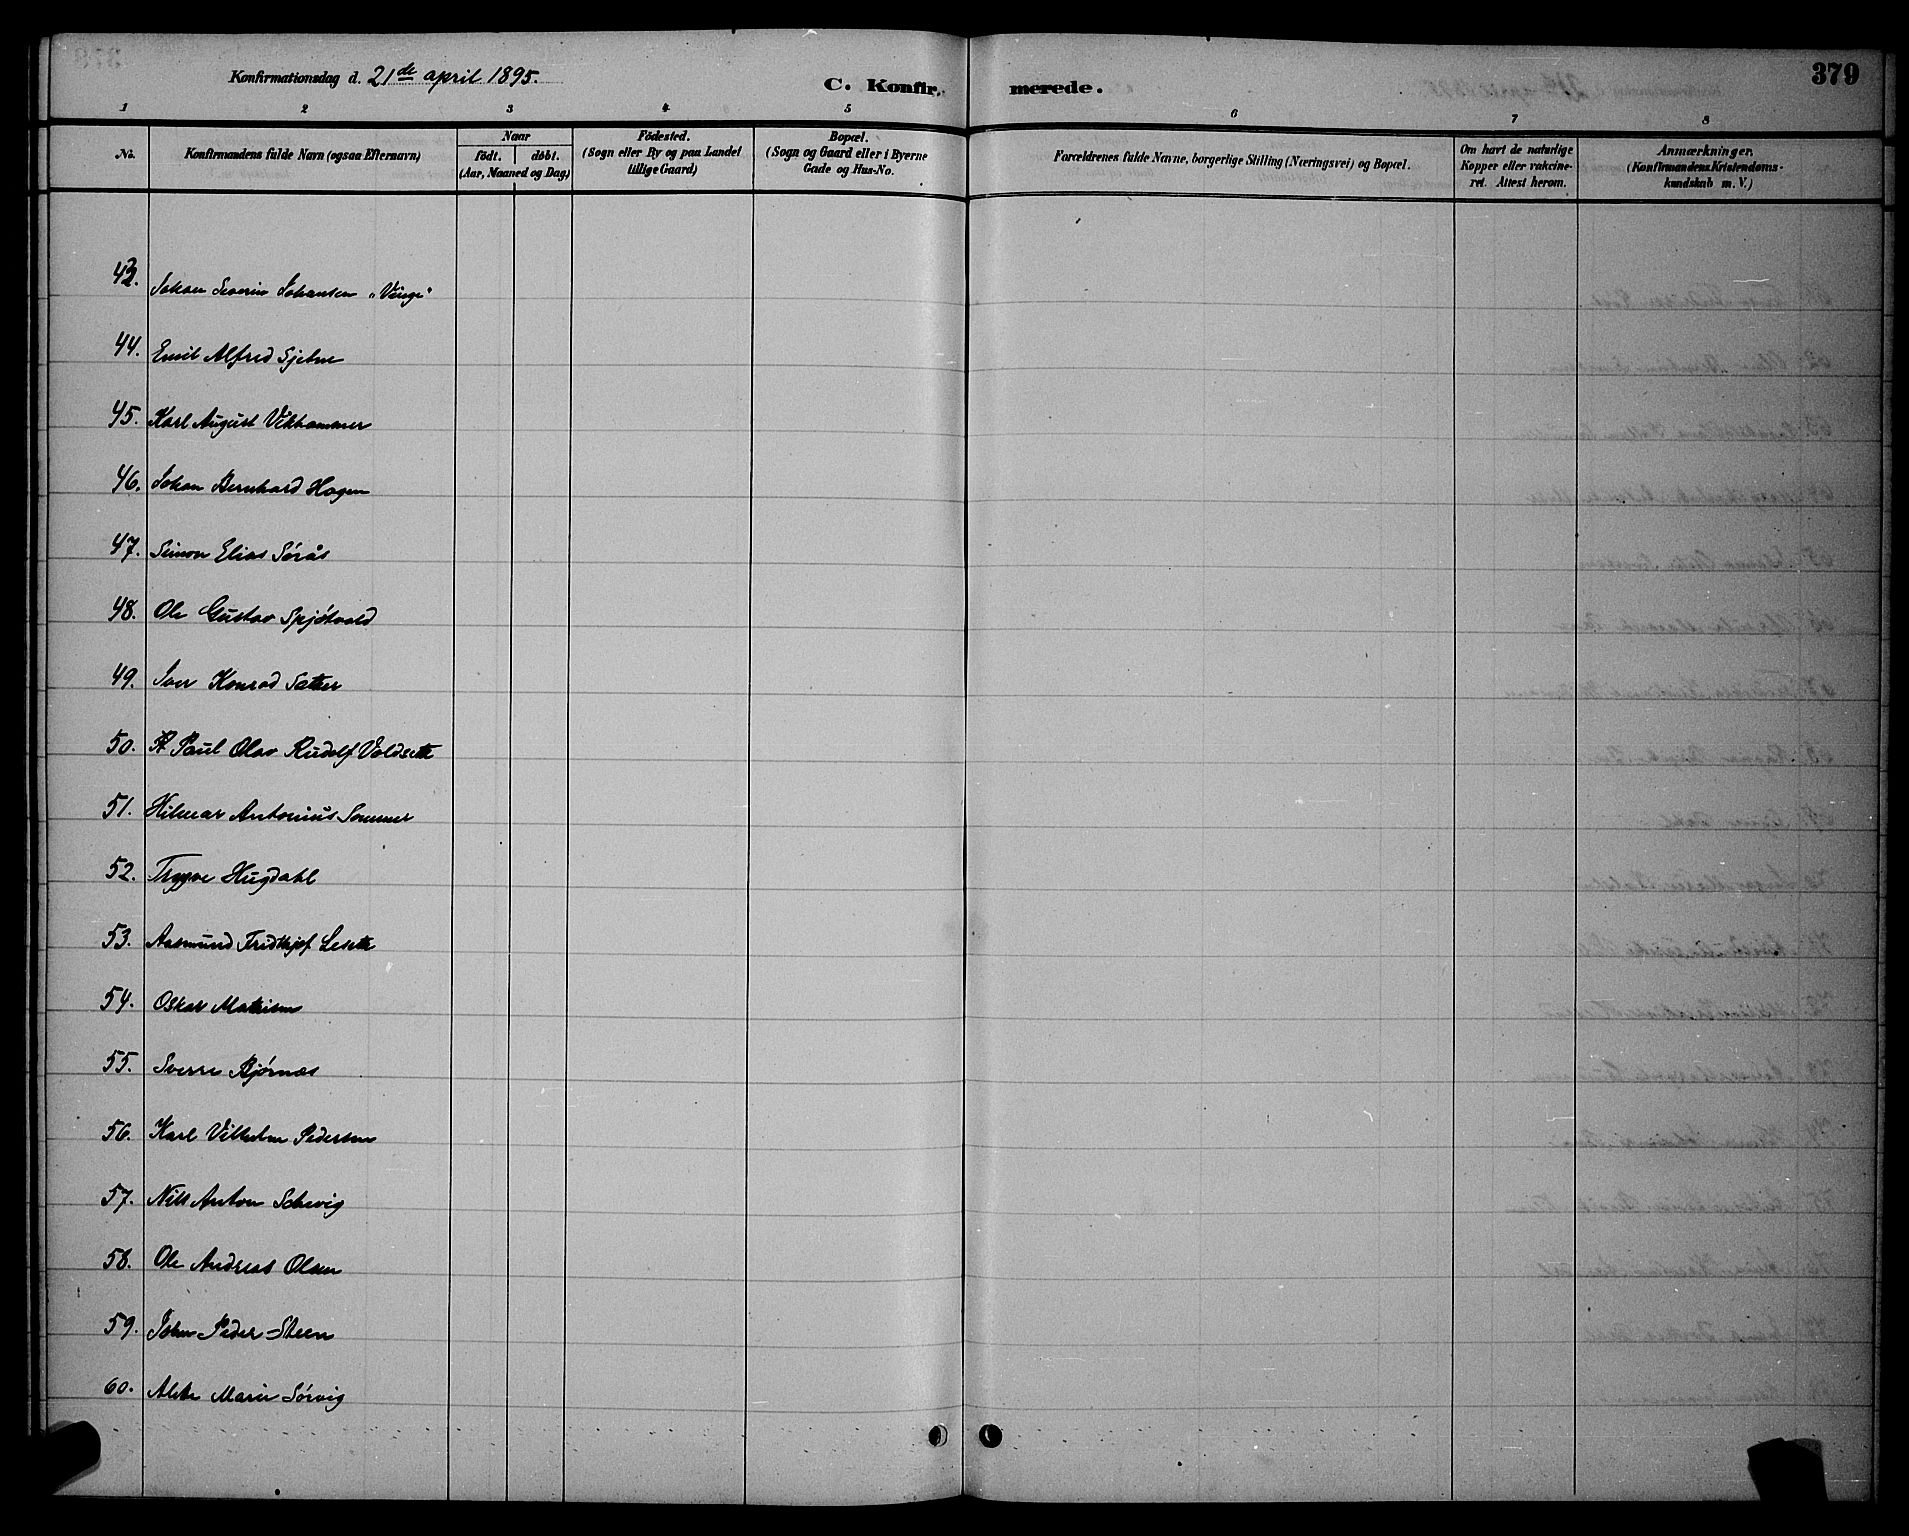 379
Konfirmationsdag d. 21de april 1895.
C. Konfirmerede.
1 2 3 4 5 6 7 8
No.
Konfirmandens fulde Navn (ogsaa Efternavn)
Naar
födt. döbt.
(Aar, Maaned og Dag)
Födested.
(Sogn eller By og paa Landet
tillige Gaard)
Bopæl.
(Sogn og Gaard eller i Byerne
Gade og Hus-No.
Forældrenes fulde Navne, borgerlige Stilling (Næringsvei) og Bopæl.
Om havt de naturlige
Kopper eller vakcine-
ret. Attest herom.
Anmærkninger.
(Konfirmandens Kristendoms-
kundskab m. V.)
43. Johan Severin Johansen "Vinge"
44. Emil Alfred Sjetne
45. Karl August Vikhammer
46. Johan Bernhard Hagen
47. Simon Elias Sørås
48. Ole Gustav Spjøtvold
49. Iver Konrad Sæther
50. Paul Olav Rudolf Voldseth
51. Hilmar Antonius Sommer
52. Trygve Hugdahl
53. Aasmund Fridthjof Leseth
54. Oskar Mathisen
55. Sverre Bjørnæs
56. Karl Vilhelm Pedersen
57. Nils Anton Schevig
58. Ole Andreas Olsen
59. John Peder Steen
60. Marie Sørvig